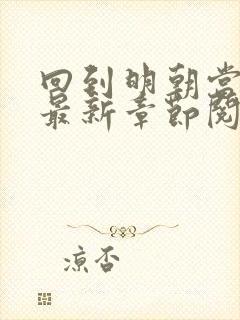 回到明朝当
最新章节阅
凉否